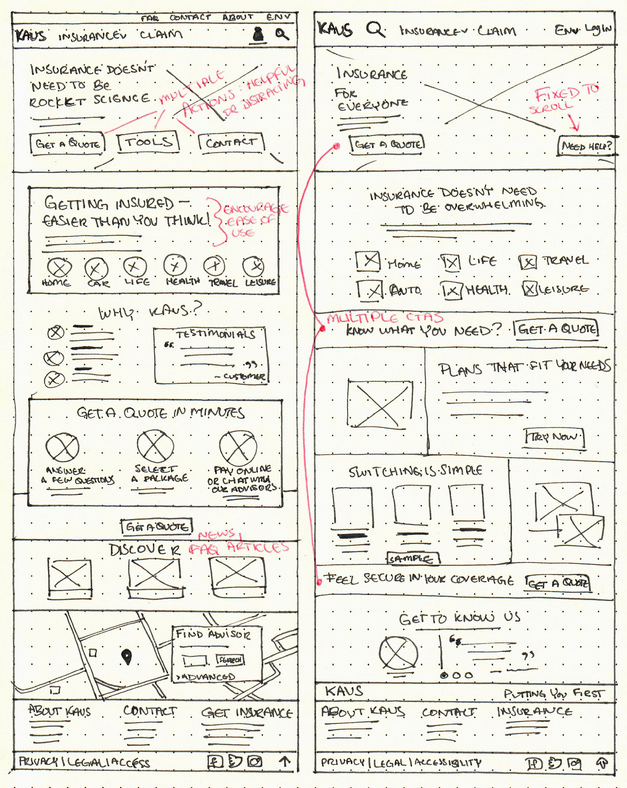 FAQ CONTACT ABOUT ENV
KAUS INSURANCE˅ CLAIM
INSURANCE DOESN'T
NEED TO BE
ROCKET SCIENCE.
MULTIPLE
ACTIONS: HELPFUL
OR DISTRACTING
GET A QUOTE
TOOLS
CONTACT
GETTING INSURED –
EASIER THAN YOU THINK!
ENCOURAGE
EASE OF
USE
HOME CAR LIFE HEALTH TRAVEL LEISURE
WHY KAUS?
TESTIMONIALS
“
”
– CUSTOMER
GET A QUOTE IN MINUTES
ANSWER
A FEW QUESTIONS
SELECT
A PACKAGE
PAY ONLINE
OR CHAT WITH
OUR ADVISORS
GET A QUOTE
NEWS/
DISCOVER FAQ ARTICLES
FIND ADVISOR
SEARCH
>ADVANCED
ABOUT KAUS CONTACT GET INSURANCE
PRIVACY | LEGAL | ACCESS
KAUS INSURANCE˅ CLAIM EN˅ LOGIN
INSURANCE
FOR
EVERYONE
FIXED TO
SCROLL
GET A QUOTE
NEED HELP?
INSURANCE DOESN'T NEED
TO BE OVERWHELMING
HOME LIFE TRAVEL
AUTO HEALTH LEISURE
MULTIPLE CTAS
KNOW WHAT YOU NEED? GET A QUOTE
PLANS THAT FIT YOUR NEEDS
TRY NOW
SWITCHING IS SIMPLE
SAMPLE
FEEL SECURE IN YOUR COVERAGE GET A QUOTE
GET TO KNOW US
“
”
KAUS PUTTING YOU FIRST
ABOUT KAUS CONTACT INSURANCE
PRIVACY | LEGAL | ACCESSIBILITY